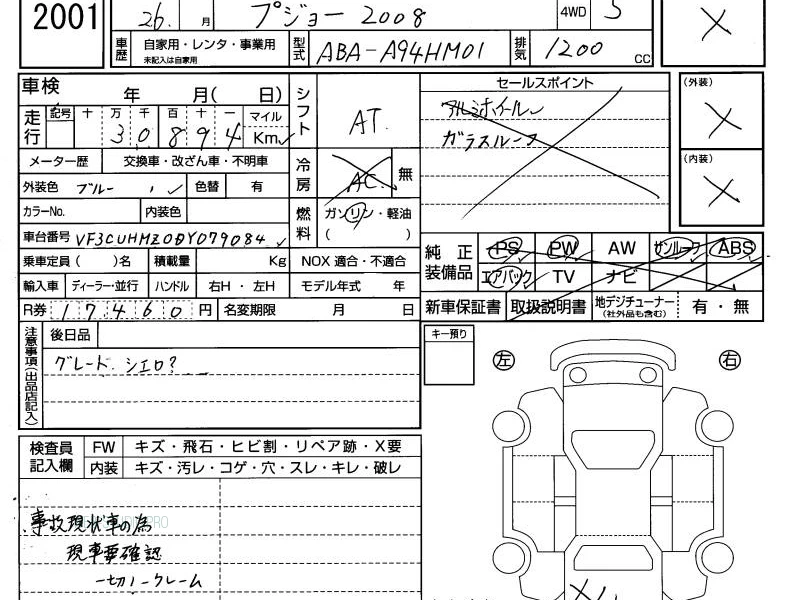 2001 26. 月 プジョー 2008 4WD 5
車歴 自家用・レンタ・事業用 未記入は自家用 型式 ABA-A94HM01 排気 1200 cc
車検 年 月( 日) シフト AT セールスポイント (外装)
走行 記号 十 万 千 百 十 一 マイル
3 0 8 9 4 Km
アルミホイール
ガラスルーフ
メーター歴 交換車・改ざん車・不明車 冷房 AC 無 (内装)
外装色 ブルー 色替 有
カラーNo. 内装色 燃料 ガソリン・軽油
( )
車台番号 VF3CUHMZ0DY079084
純正装備品 PS PW AW サンルーフ ABS
エアバック TV ナビ
乗車定員( )名 積載量 Kg NOX 適合・不適合
輸入車 ディーラー・並行 ハンドル 右H・左H モデル年式 年
R券 17460 円 名変期限 月 日
新車保証書 取扱説明書 地デジチューナー (社外品も含む) 有・無
注意事項(出品店記入) 後日品
グレード シエロ?
キー預り
左 右
検査員記入欄 FW キズ・飛石・ヒビ割・リペア跡・X要
内装 キズ・汚レ・コゲ・穴・スレ・キレ・破レ
事故現状車の為
現車要確認
一切ノークレーム